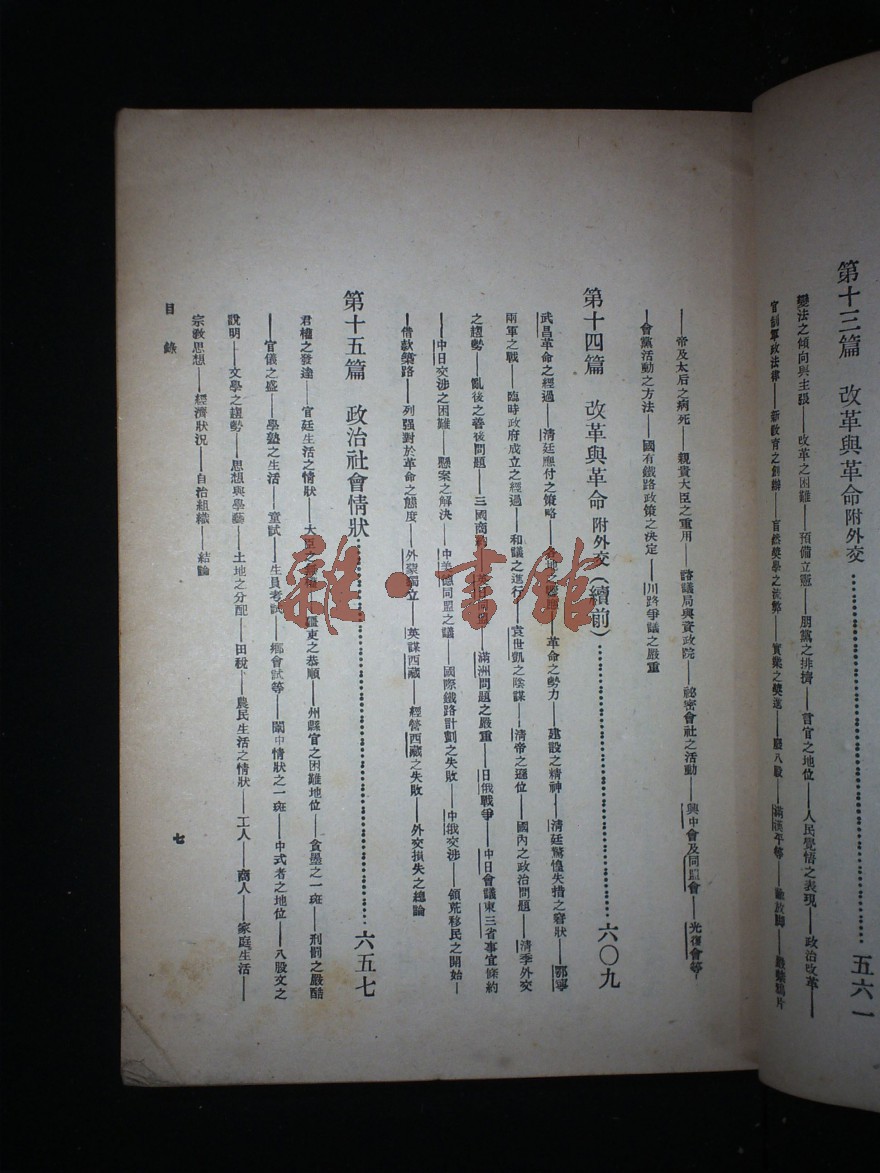 第十三篇 改革與革命 附外交……五六一
變法之傾向與主張——改革之困難——預備立憲——朋黨之排擠——言官之地位——人民覺悟之表現——政治改革——
官制軍政法律——新教育之創辦——盲然獎學之流弊——實業之獎進——廢八股——滿漢平等——鴉片
——帝及太后之病死——親貴大臣之重用——諮議局與資政院——祕密會社之活動——興中會及同盟會——光復會等——
會黨活動之方法——國有鐵路政策之決定——川路爭議之嚴重
第十四篇 改革與革命 附外交(續前)……六〇九
武昌革命之經過——清廷應付之策略——各地之響應——革命之勢力——建設之精神——清廷驚惶失措之窘狀——鄂寧
兩軍之戰——臨時政府成立之經過——和議之進行——袁世凱之陰謀——清帝之遜位——國內之政治問題——清季外交
之趨勢——亂後之善後問題——三國商約——英日同盟——滿洲問題之嚴重——日俄戰爭——中日會議東三省事宜條約
——中日交涉之困難——懸案之解決——中美德同盟之議——國際鐵路計劃之失敗——中俄交涉——領荒移民之開始——
借款築路——列強對於革命之態度——外蒙獨立——英謀西藏——經營西藏之失敗——外交損失之總論
第十五篇 政治社會情狀……六五七
君權之發達——官廷生活之情狀——大臣之——疆吏之恭順——州縣官之困難地位——貪墨之一斑——刑罰之嚴酷
——官儀之盛——學塾之生活——童試——生員考試——鄉會試等——闈中情狀之一斑——中式者之地位——八股文之
說明——文學之趨勢——思想與學藝——土地之分配——田稅——農民生活之情狀——工人——商人——家庭生活——
宗教思想——經濟狀況——自治組織——結論
目錄
七
雜·書館